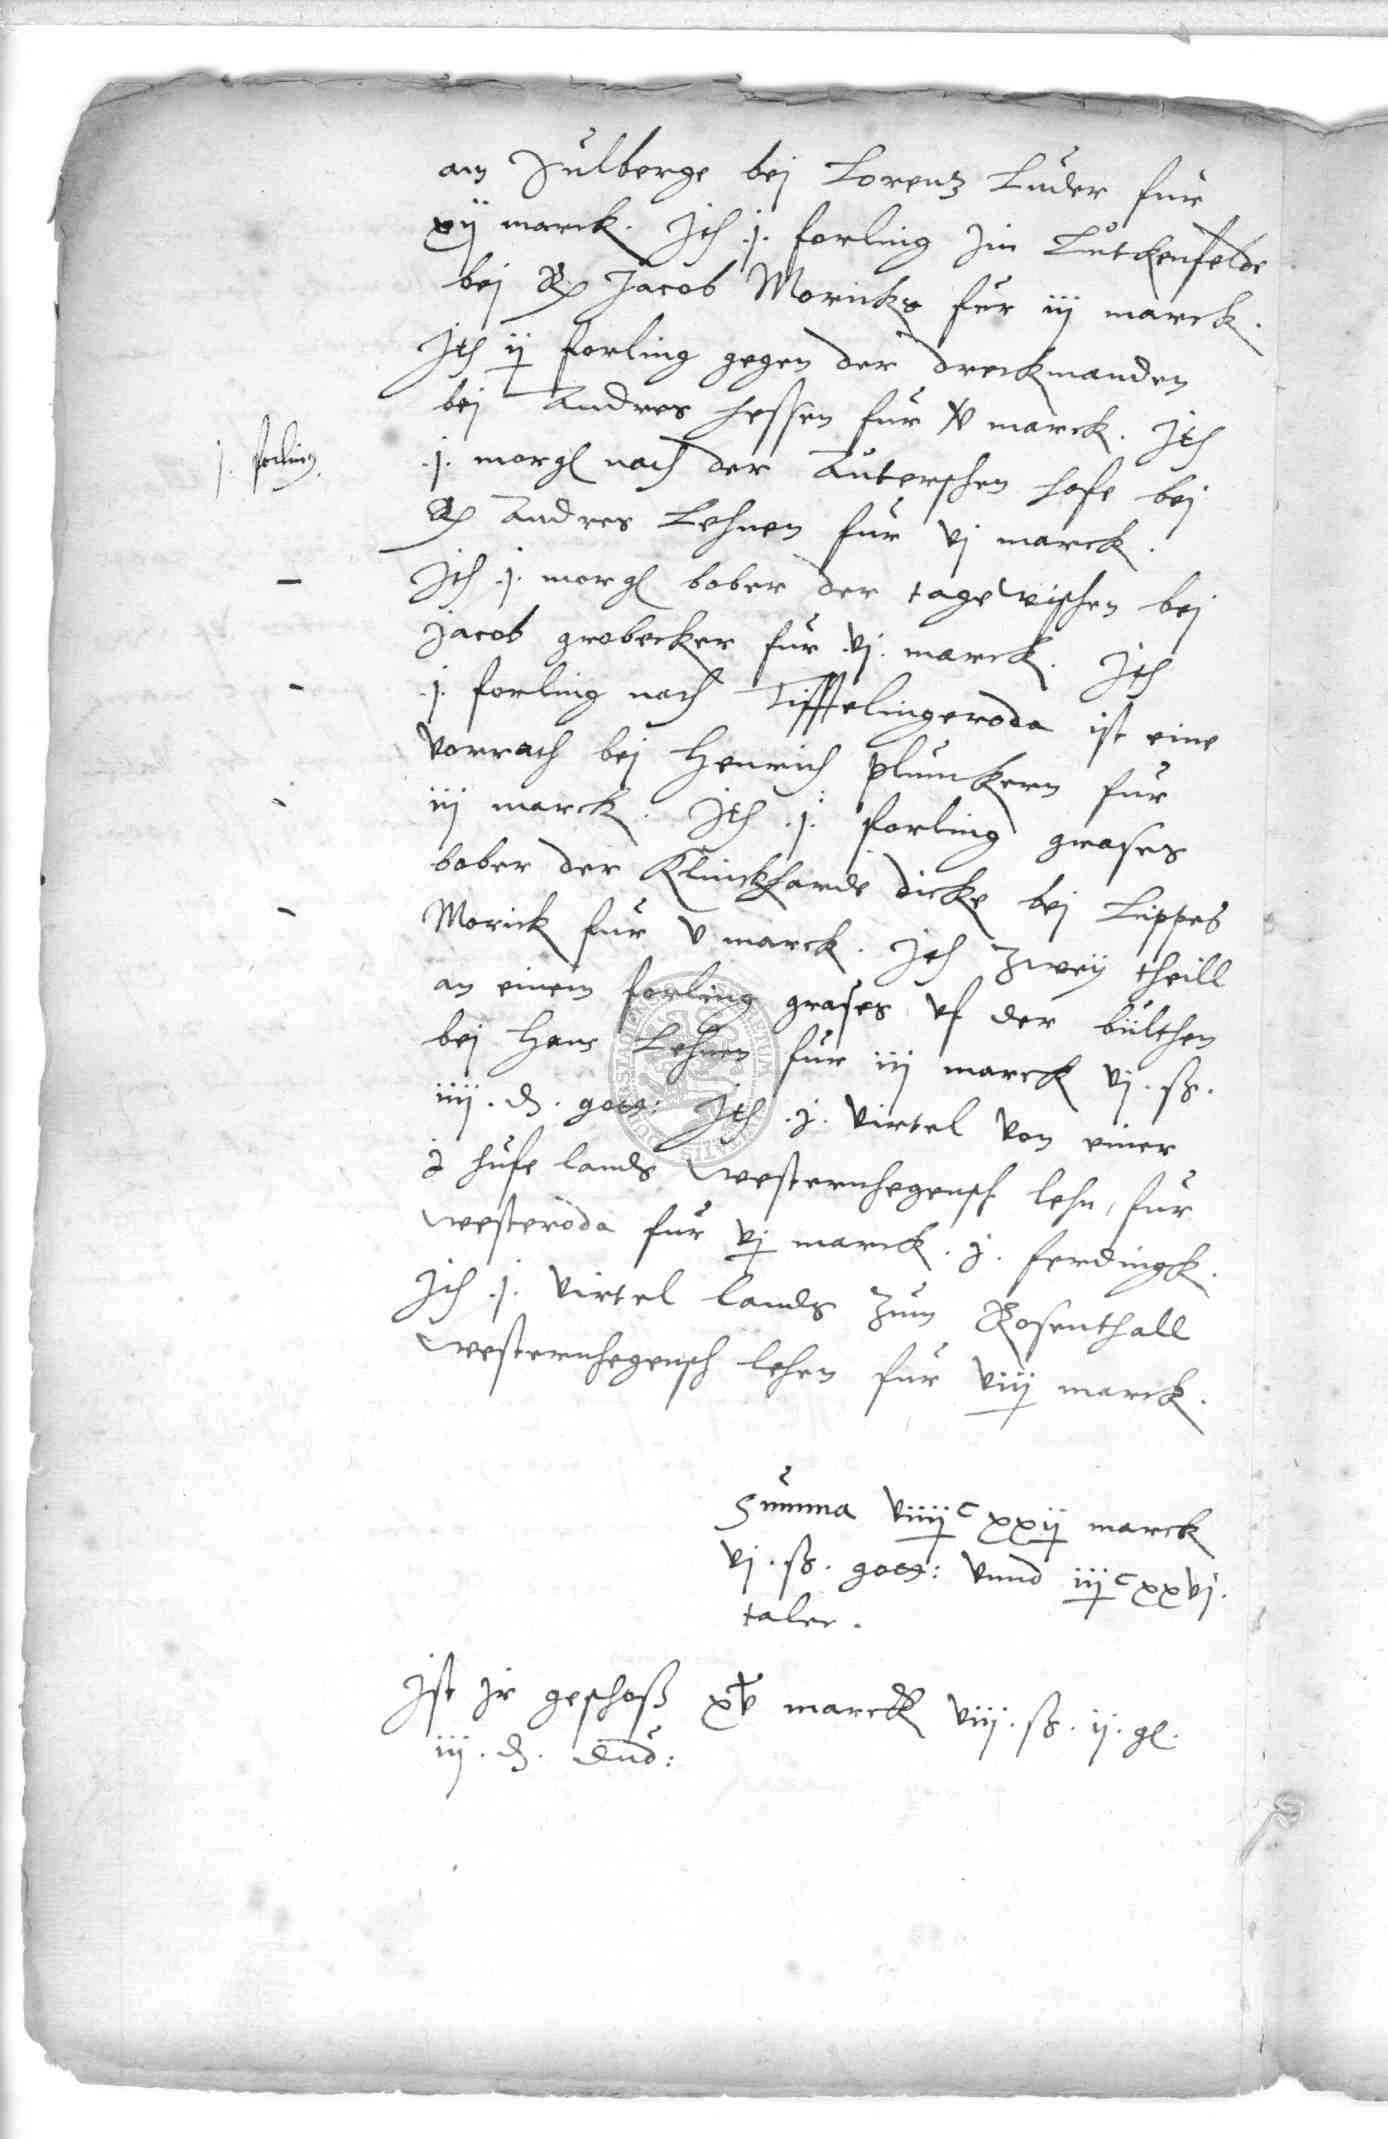 am Sulberge bej Lorentz Luder fur
xij marck. Jth .j. forling jm Lutckenfelde
bej Er Jacob Moricks fur iij marck.
Jth ij forling gegen der dreckmanden
bej Andres Hessen fur xv marck. Jth
j. forling.
.j. morgl nach der Auterschen hofe bej
Er Andres Lehnen fur vj marck.
Jth .j. morgl bober der tagewischen bej
Jacob grobecker fur .vj. marck. Jth
.j. forling nach Tifftelingeroda ist eine
vorrath bej Henrich plumckern fur
iij marck. Jth .j. forling grases
bober der Klinckharde dicke bej Lippes
Morick fur v marck. Jth zweij theill
an einem forling grases vf der bulthen
bej Hans Lehnen fur iij marck vj. ß.
iiij. d. gott: Jth .j. virtel von einer
j hufe lands westernhegensch lehn, fur
westeroda fur vj marck. j. ferdingck.
Jth .j. virtel lands zum Rosenthall
westernhegensch lehen fur viij marck.
Summa viiij c xxij marck
vj. ß. gott: vnnd iij c xxvj.
taler.
Jst jr geschoß xv marck viij. ß. ij. gl.
iij. d. dud: